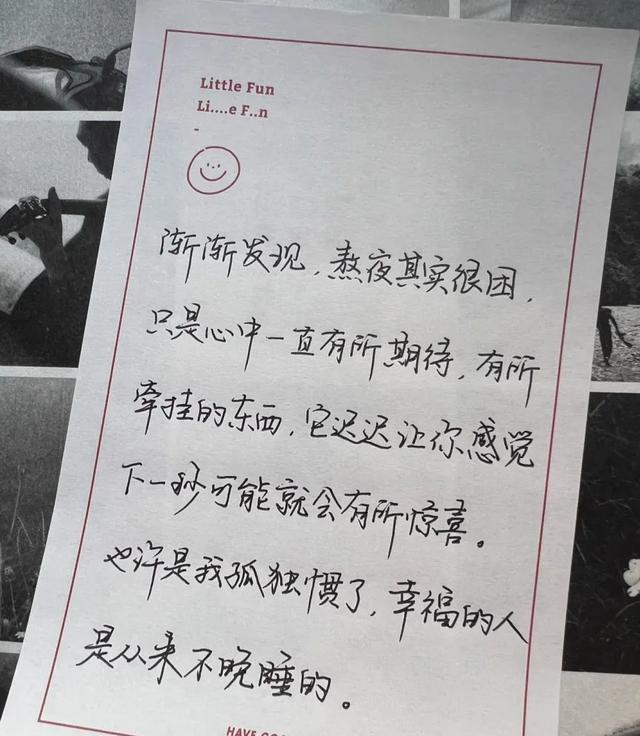 Little Fun
Li....e F..n
-
渐渐发现,熬夜其实很困,
只是心中一直有所期待,有所
牵挂的东西,它迟迟让你感觉
下一秒可能就会有所惊喜。
也许是我孤独惯了,幸福的人
是从来不晚睡的。
HAVE